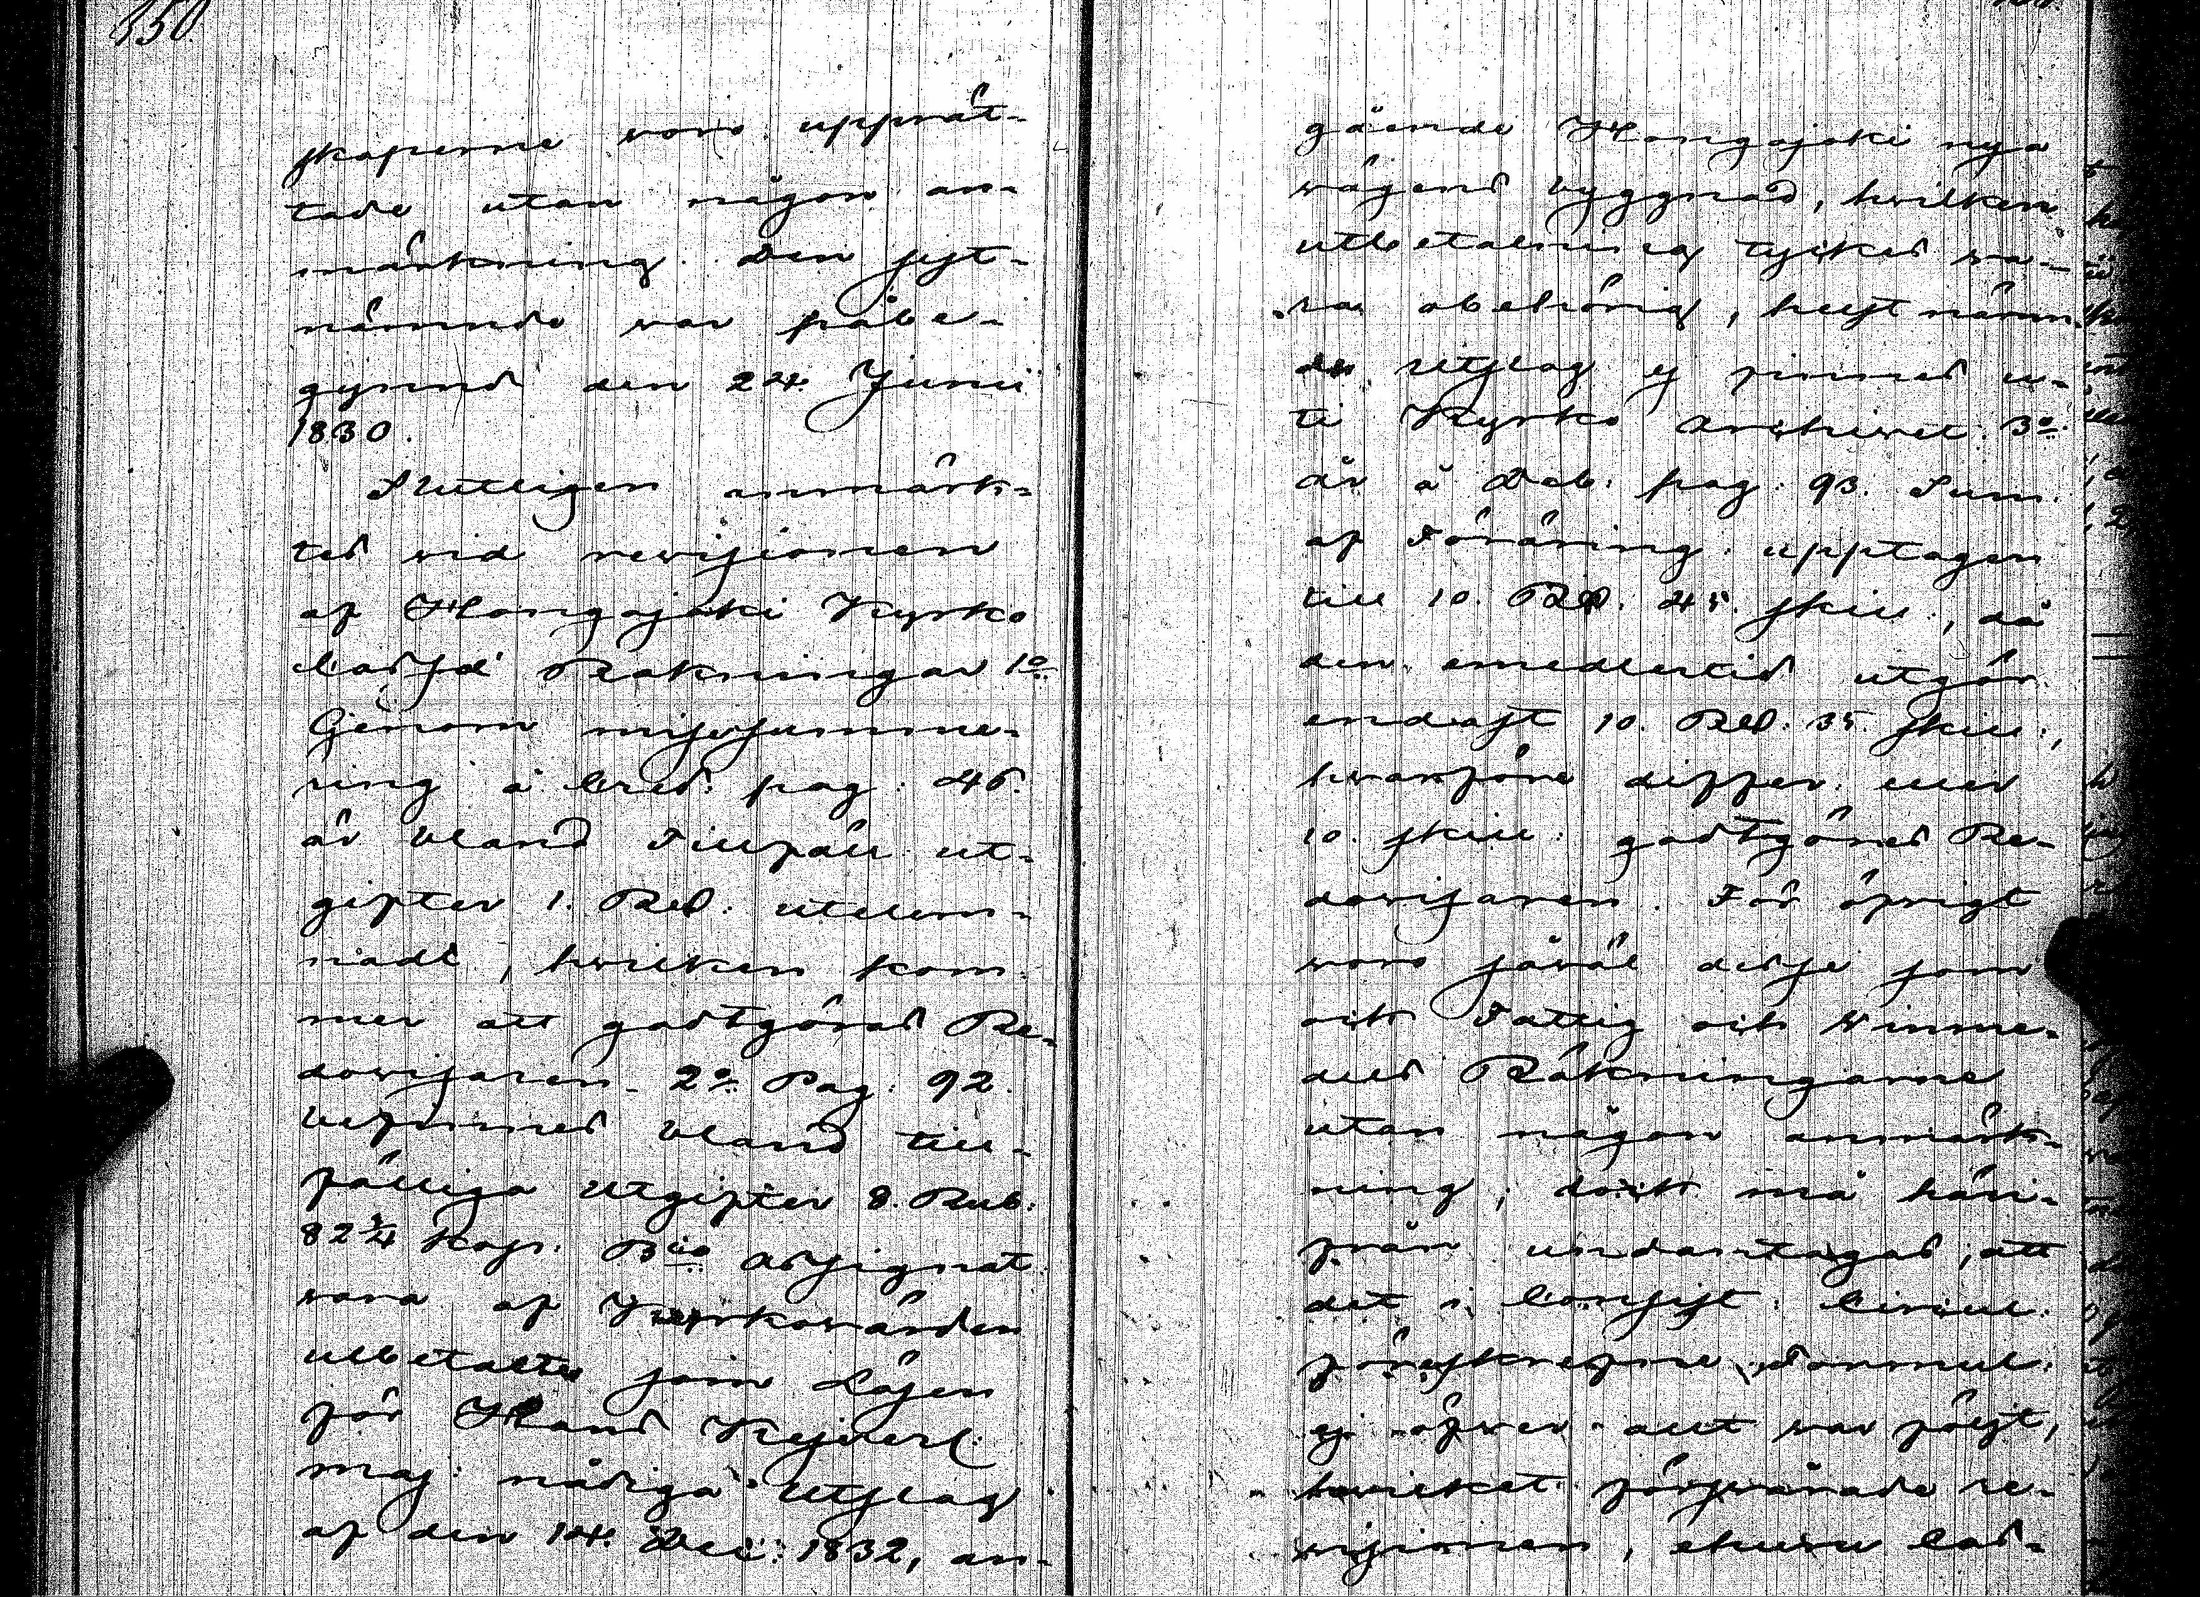 350.
skaperne voro upprät-
tade utan någon an-
märkning. Den sist-
nämnde var påbe-
gynnd den 24. Junii
1830.
Slutligen anmärk-
tes vid revisionen
af Hongojoki Kyrko
Cassæ Räkningar 1o
Genom missumme-
ring å Cred: pag: 46.
är bland Tillfäll: ut-
gifter 1. Rd: utelem-
nadt, hvilken kom-
mer att godtgöras Re-
dovisaren. 2o Pag: 92.
befinnes bland till-
fälliga Utgifter 8. Rub:
82 3/4 Kop: Bco Assignat.
vara af Kyrkovärden
utbetalte som Lösen
för Hans Kejserl:
Maj: nådiga Utslag
af den 14. Dec: 1832, an-
gående Hongojoki nya
vägens byggnad, hvilken
utbetalning tyckes va-
ra obehörig, helst nämn-
de Utslag ej finnes u-
ti Kyrko Archivet. 3o
är å Deb: pag: 93. Sum.
af Föräring: upptagen
till 10. Rd. 45. skill:, då
den emedlertid utgör
endast 10. Rd: 35. skill:,
hvarföre differ: eller
10. skill: godtgöres Re-
dovisaren. För öfrigt
voro såväl desse som
ock Fattig och Winme-
dels Räkningarne
utan någon anmärk-
ning; dock må häri-
från undantagas, att
det i Consist: Circul:
föreskrefne Formul:
ej öfver allt var följt,
hvilket försvårade re-
visionen, ehuru Cas-